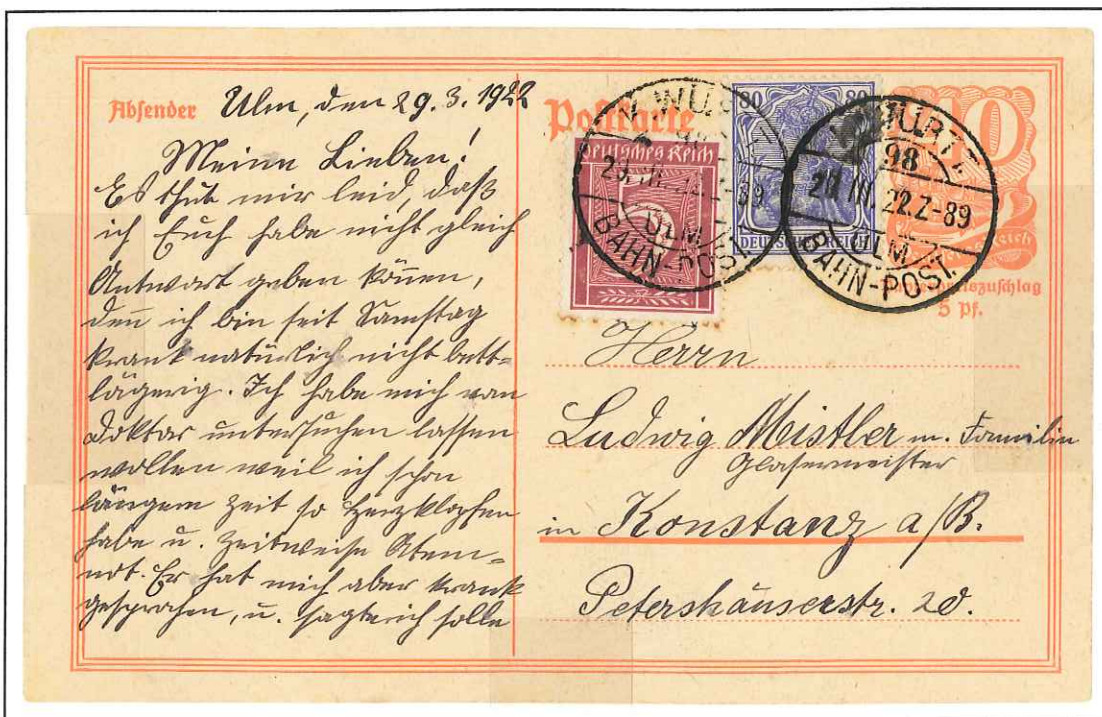 Absender Ulm, den 29. 3. 1922
Meine Lieben!
Es thut mir leid, daß
ich Euch habe nicht gleich
Antwort geben können,
den ich bin seit Samstag
krank natürlich nicht bett-
lägerig. Ich habe mich vom
Doktor untersuchen lassen
wollen weil ich schon
längere Zeit so Herzklopfen
habe u. zeitweise Atem-
not. Er hat mich aber krank
gesprochen, u. sagte ich solle
Postkarte
Deutsches Reich
80 80
DEUTSCHES REICH
98
29. III. 22. Z-89
ULM
BAHN-POST
98
29. III. 22. Z-89
ULM.
BAHN-POST.
40
5 Pf.
Herrn
Ludwig Mistler m. Familie
Glasermeister
in Konstanz a/B.
Petershauserstr. 20.